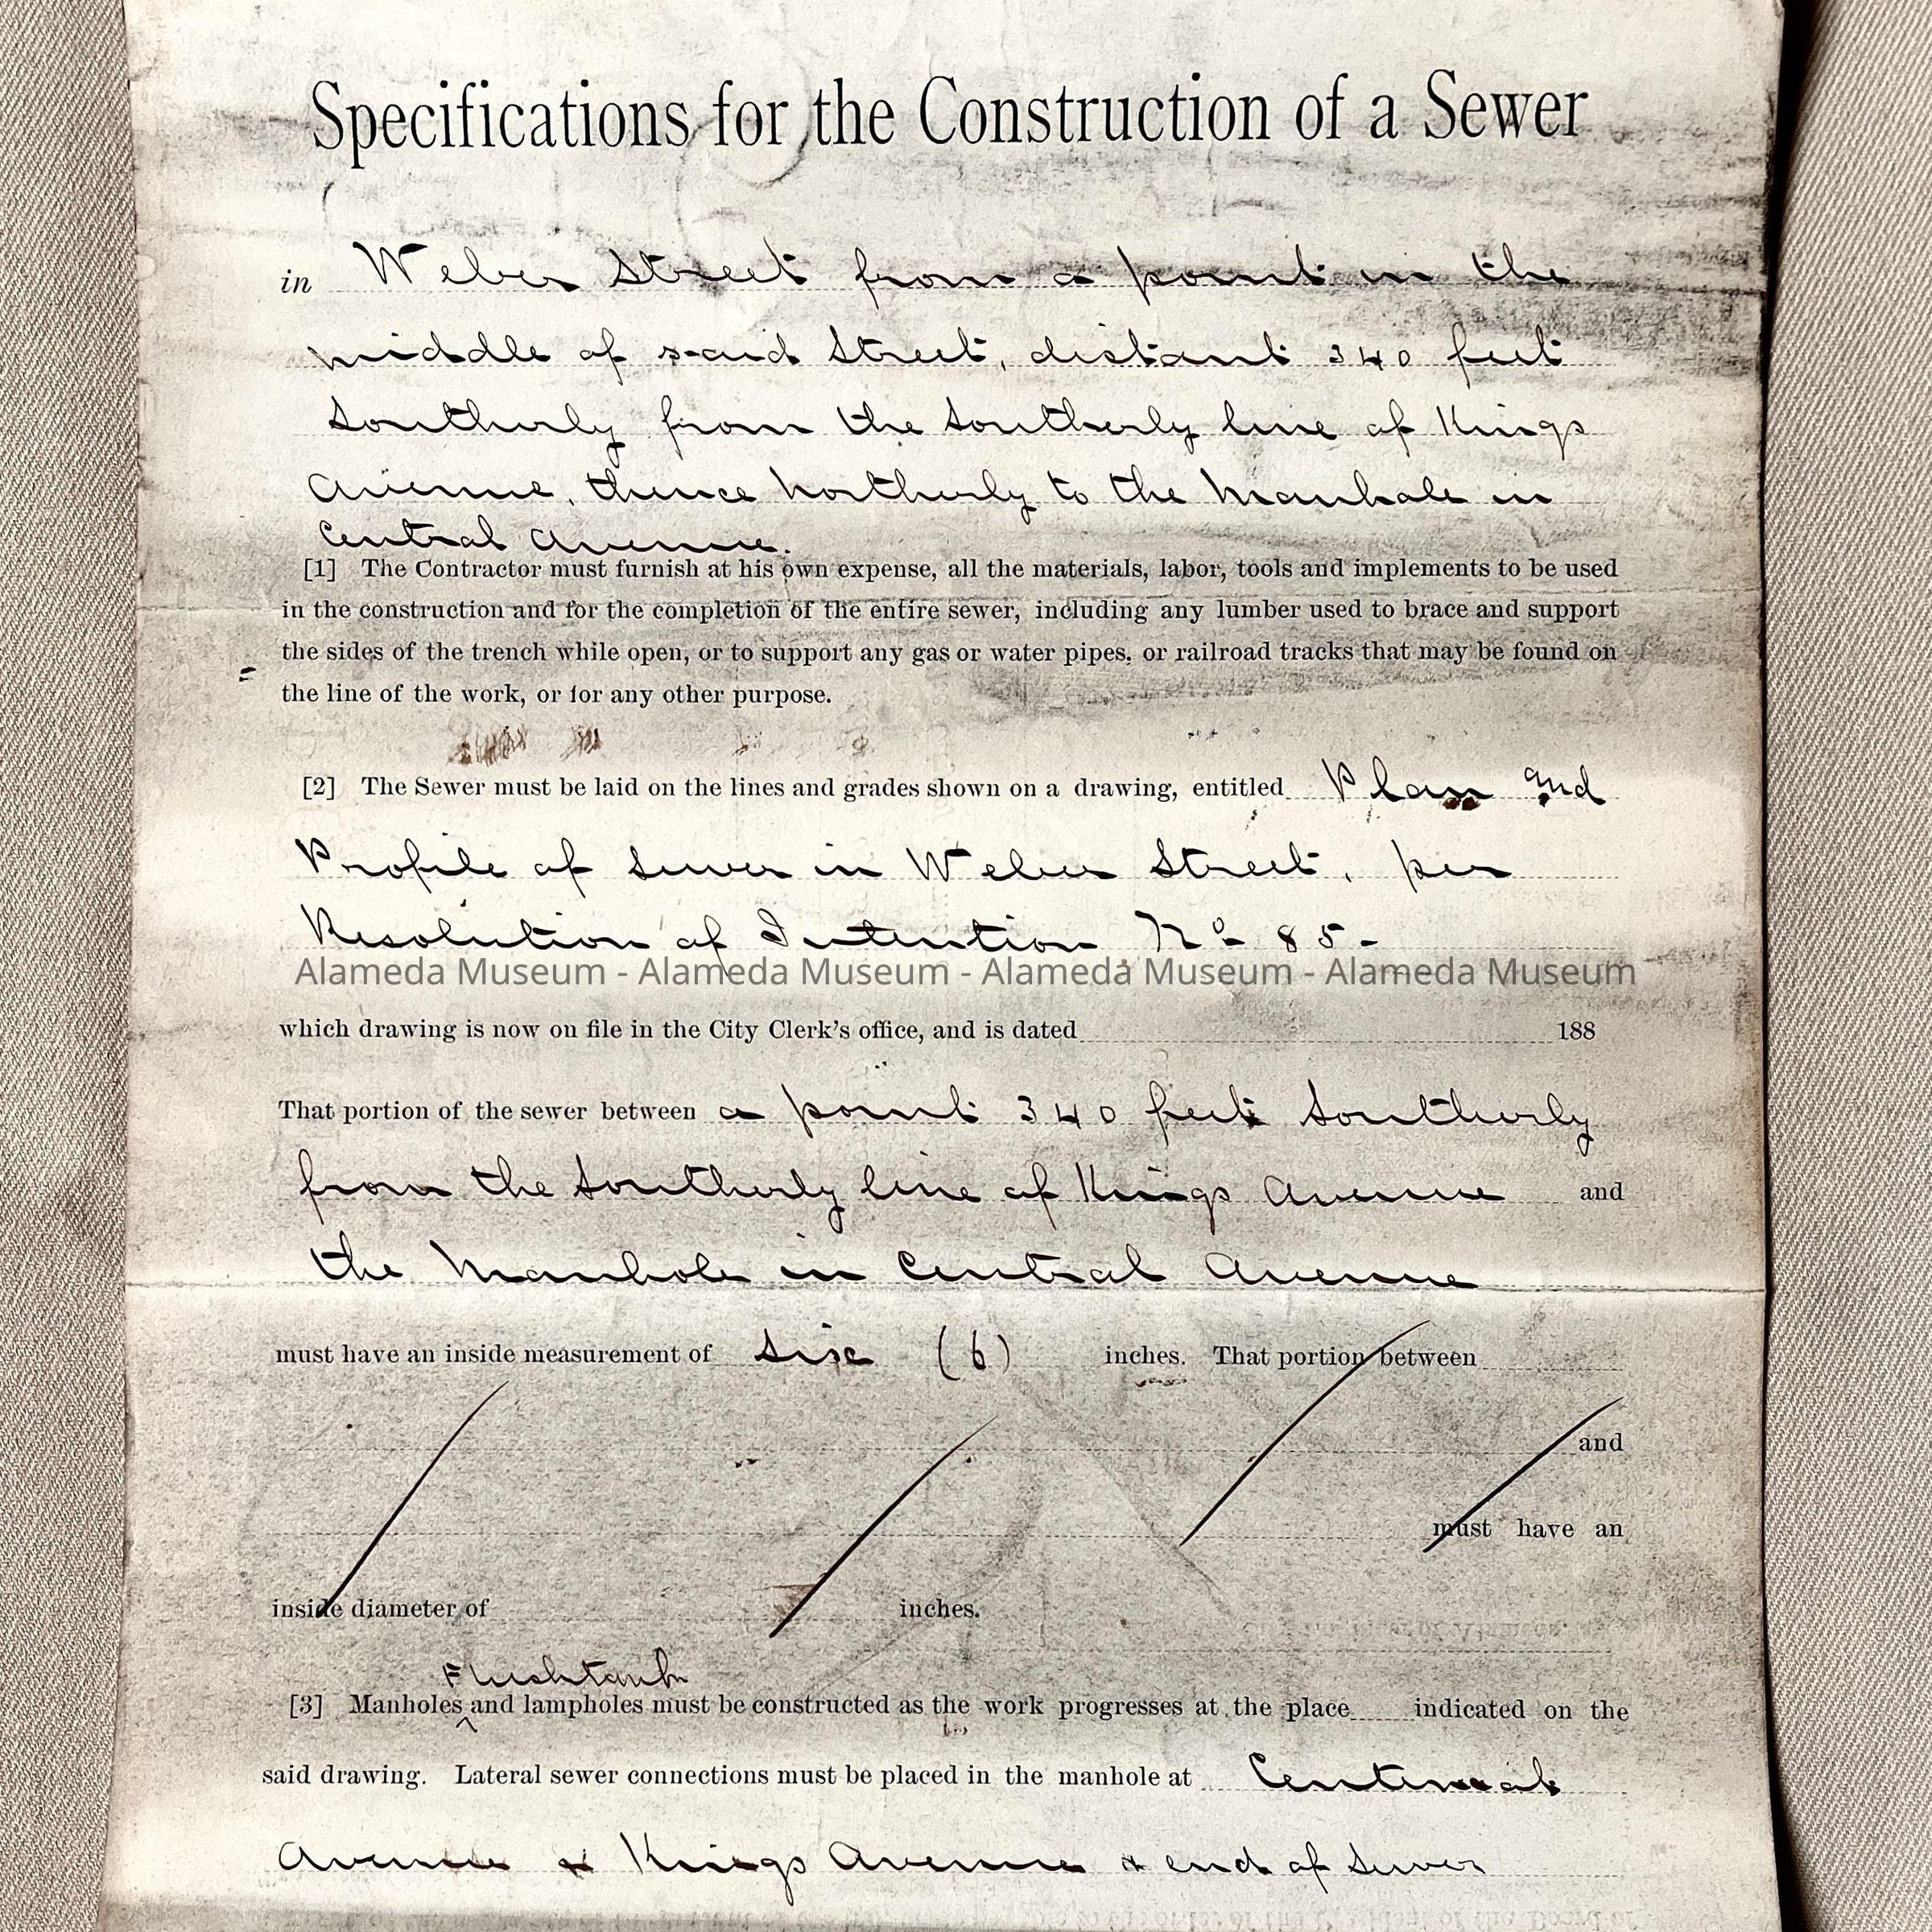 Specifications for the Construction of a Sewer
in Weber Street from a point in the
middle of said Street, distant 340 feet
Southerly from the Southerly line of Kings
Avenue, thence Northerly to the Manhole in
Central Avenue.
[1] The Contractor must furnish at his own expense, all the materials, labor, tools and implements to be used
in the construction and for the completion of the entire sewer, including any lumber used to brace and support
the sides of the trench while open, or to support any gas or water pipes, or railroad tracks that may be found on
the line of the work, or for any other purpose.
[2] The Sewer must be laid on the lines and grades shown on a drawing, entitled Plan and
Profile of Sewer in Weber Street, per
Resolution of Intention No 85-
Alameda Museum - Alameda Museum - Alameda Museum - Alameda Museum
which drawing is now on file in the City Clerk's office, and is dated 188
That portion of the sewer between a point 340 feet Southerly
from the Southerly line of Kings Avenue and
the Manhole in Central Avenue
must have an inside measurement of six (6) inches. That portion between
and
must have an
inside diameter of inches.
Flushtank
[3] Manholes ^ and lampholes must be constructed as the work progresses at the place indicated on the
said drawing. Lateral sewer connections must be placed in the manhole at Central
Avenue & Kings Avenue & end of Sewer